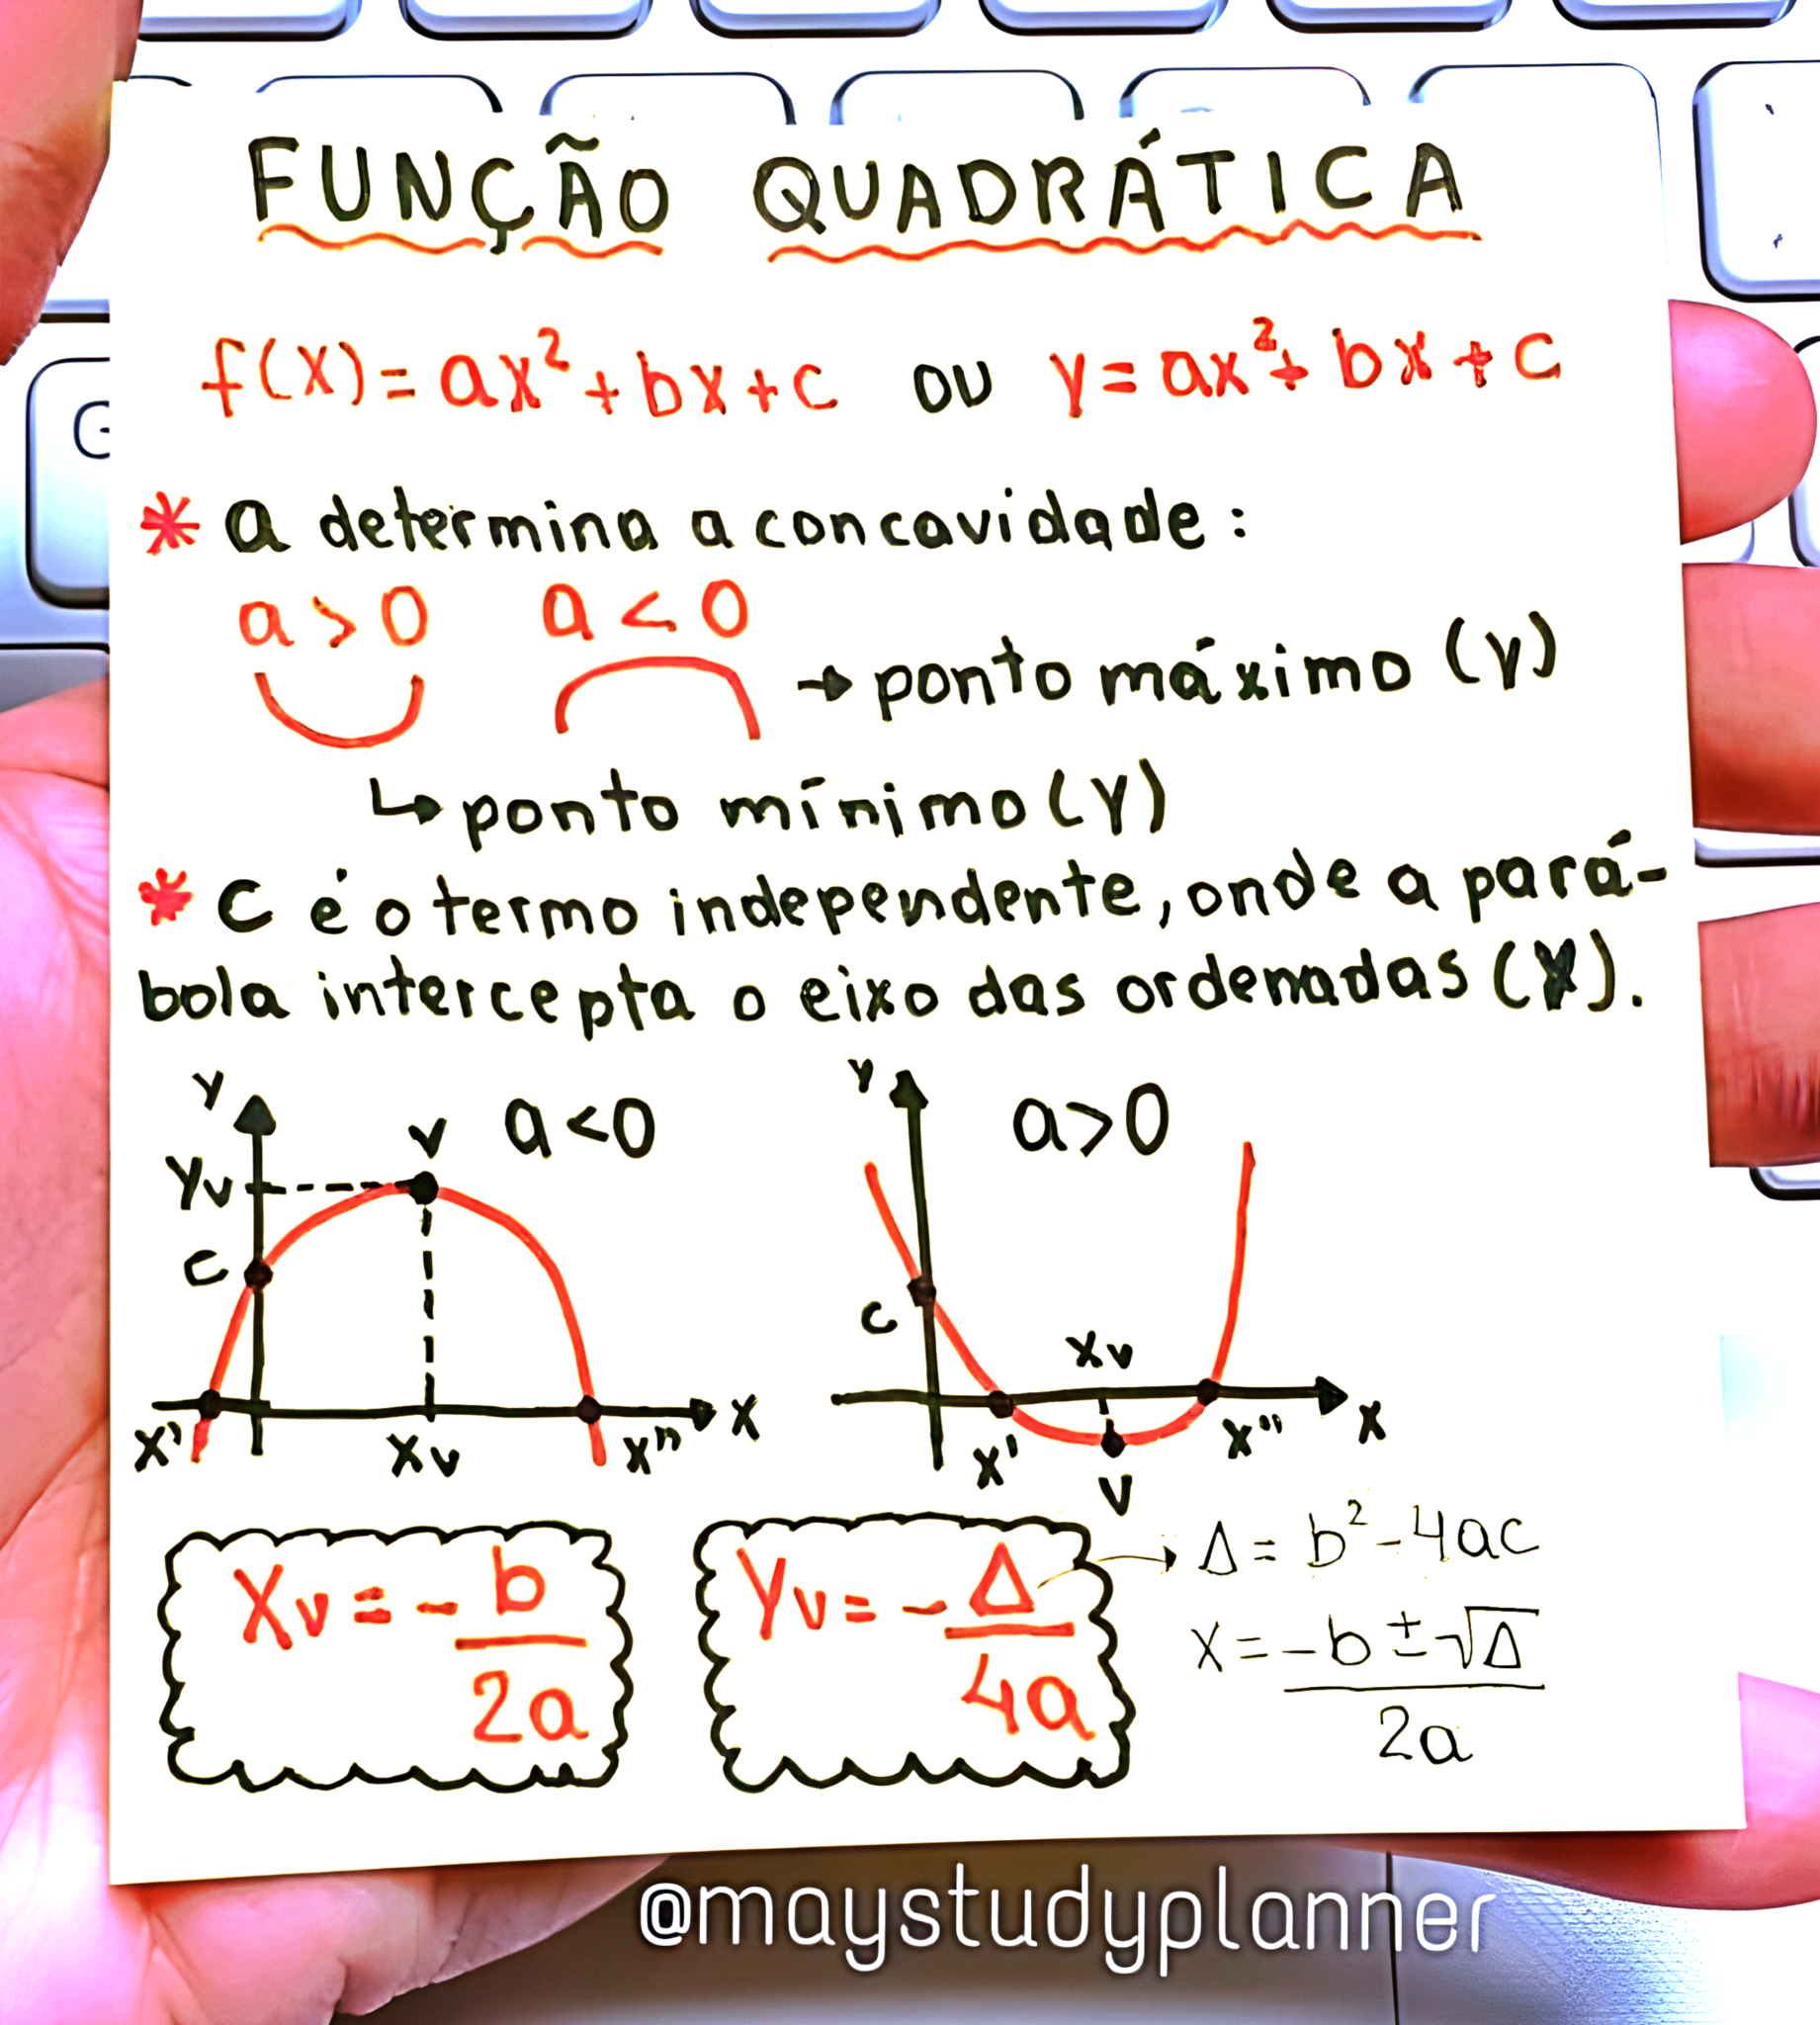 G
FUNÇÃO QUADRÁTICA
f(x) = ax² + bx + c ou y = ax² + bx + c
* a determina a concavidade:
a > 0 a < 0
→ ponto máximo (y)
↳ ponto mínimo (y)
* c é o termo independente, onde a pará-
bola intercepta o eixo das ordenadas (y).
y a<0 y a>0
v
yv
c c
xv
x' xv x'' x x' x'' x
v
Δ = b² - 4ac
xv = - b/2a yv = - Δ/4a
x = -b ± √Δ/2a
@maystudyplanner